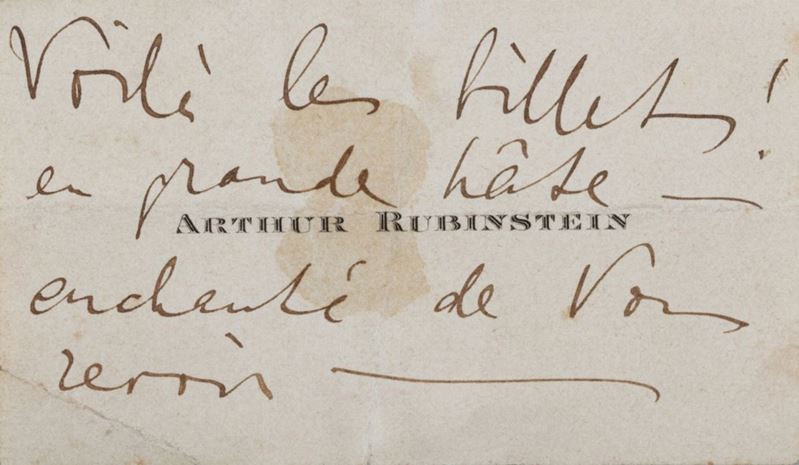 Voilà les billets !
en grande hâte —
ARTHUR RUBINSTEIN
enchanté de Vous
revoir —